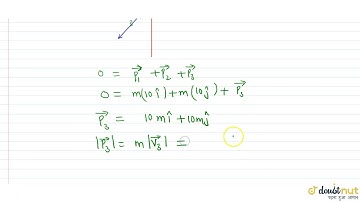 0 = P₁ + P₂ + P₃
0 = m(10î) + m(10ĵ) + P₃
P₃ = 10mî + 10mĵ
|P₃| = m|V₃| =
doubtnut